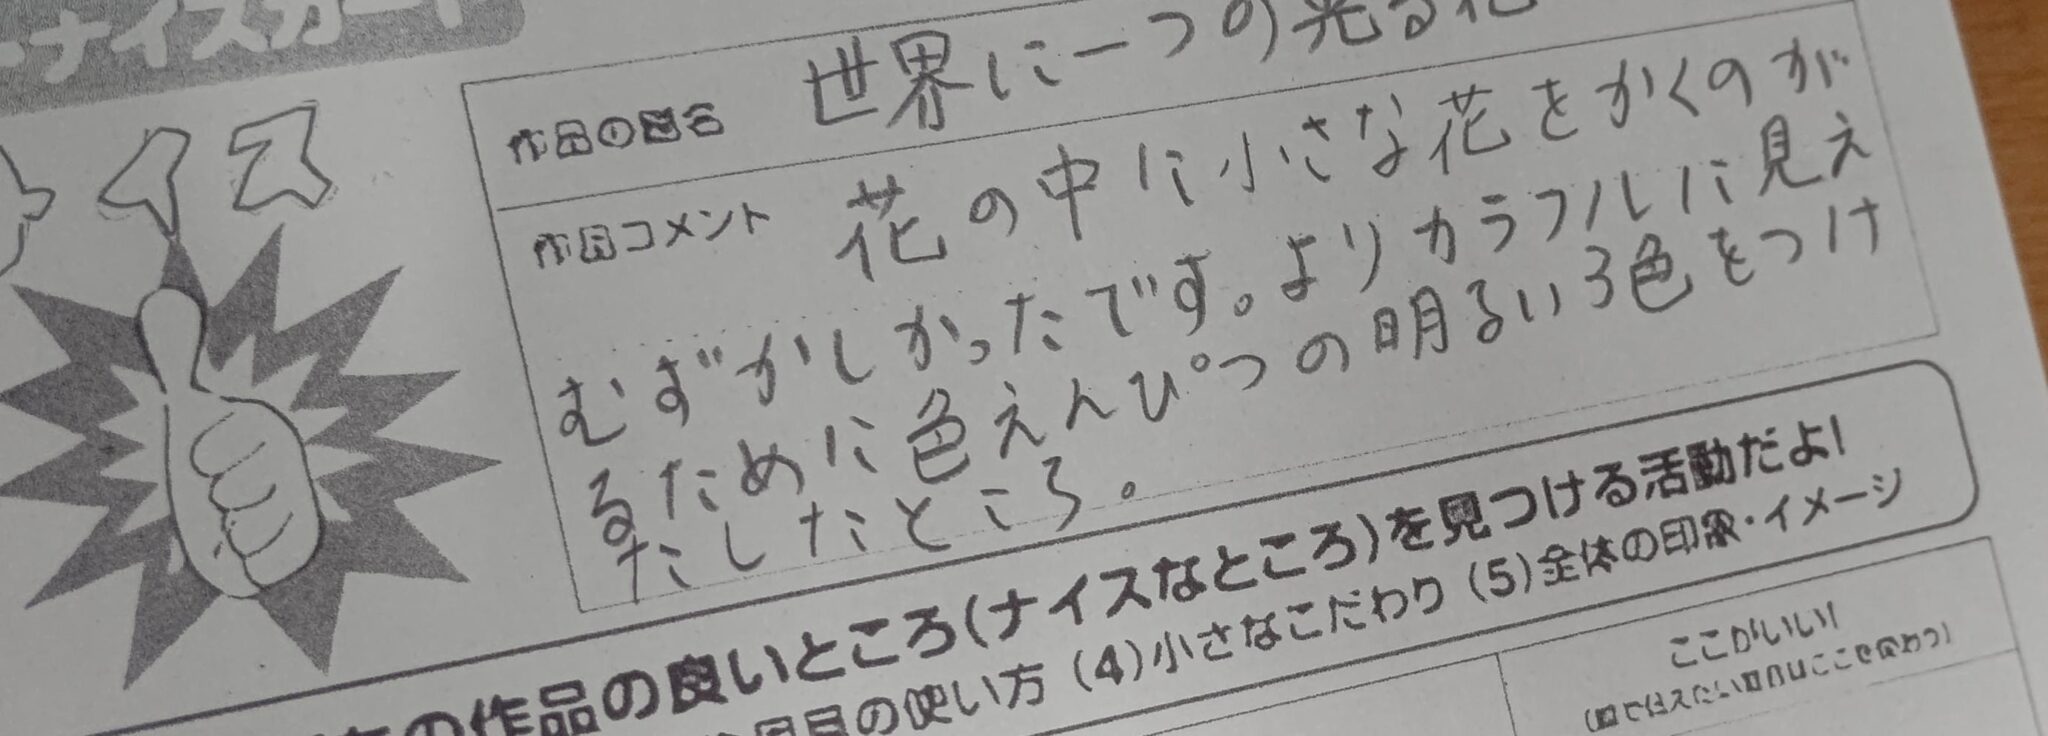 ナイスカード
イス
作品の題名 世界に一つの光る花
作品コメント 花の中に小さな花をかくのが
むずかしかったです。よりカラフルに見え
るために色えんぴつの明るいろ色をつけ
たしたところ。
の作品の良いところ(ナイスなところ)を見つける活動だよ!
の使い方 (4)小さなこだわり (5)全体の印象・イメージ
ここがいい!